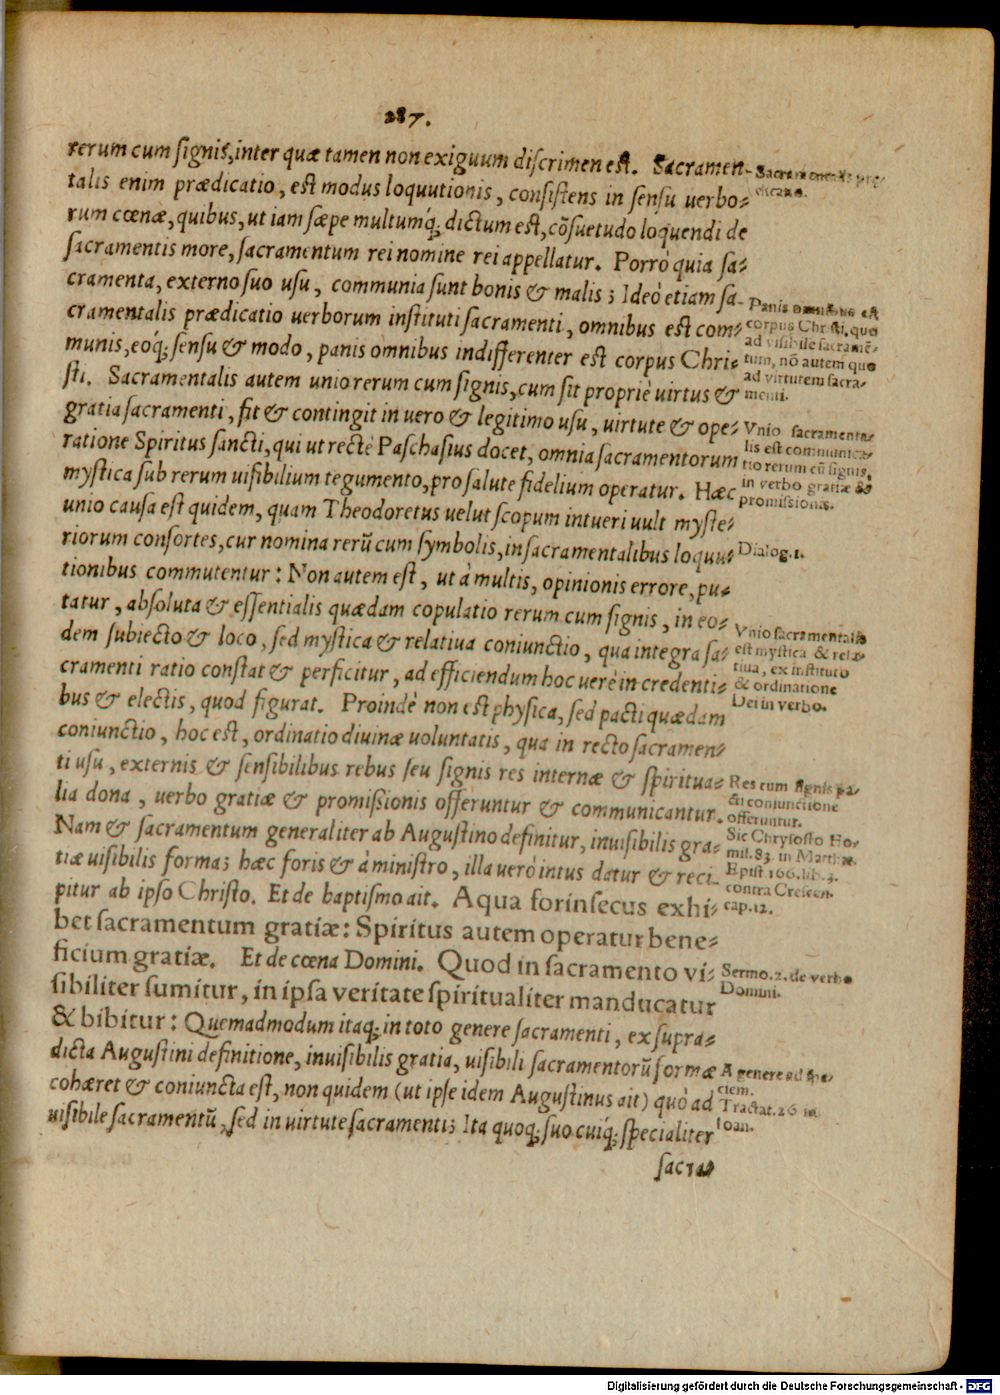 287.
rerum cum ſignis, inter quæ tamen non exiguum diſcrimen eſt. Sacramen-
talis enim prædicatio, eſt modus loquutionis, conſiſtens in ſenſu uerbo-
rum cœnæ, quibus, ut iam ſæpe multumq́; dictum eſt, cõſuetudo loquendi de
ſacramentis more, ſacramentum rei nomine rei appellatur. Porrò quia ſa-
cramenta, externo ſuo uſu, communia ſunt bonis & malis; Ideò etiam ſa-
cramentalis prædicatio uerborum inſtituti ſacramenti, omnibus eſt com-
munis, eoq́; ſenſu & modo, panis omnibus indifferenter eſt corpus Chri-
ſti. Sacramentalis autem unio rerum cum ſignis, cum ſit propriè uirtus &
gratia ſacramenti, fit & contingit in uero & legitimo uſu, uirtute & ope-
ratione Spiritus ſancti, qui ut rectè Paſchaſius docet, omnia ſacramentorum
myſtica ſub rerum uiſibilium tegumento, pro ſalute fidelium operatur. Hæc
unio cauſa eſt quidem, quam Theodoretus uelut ſcopum intueri uult myſte-
riorum conſortes, cur nomina rerũ cum ſymbolis, in ſacramentalibus loquu-
tionibus commutentur: Non autem eſt, ut à multis, opinionis errore, pu-
tatur, abſoluta & eſſentialis quædam copulatio rerum cum ſignis, in eo-
dem ſubiecto & loco, ſed myſtica & relatiua coniunctio, qua integra ſa-
cramenti ratio conſtat & perficitur, ad efficiendum hoc uerè in credenti-
bus & electis, quod figurat. Proindè non eſt phyſica, ſed pacti quædam
coniunctio, hoc eſt, ordinatio diuinæ uoluntatis, qua in recto ſacramen-
ti uſu, externis & ſenſibilibus rebus ſeu ſignis res internæ & ſpiritua-
lia dona, uerbo gratiæ & promiſsionis offeruntur & communicantur.
Nam & ſacramentum generaliter ab Auguſtino definitur, inuiſibilis gra-
tiæ uiſibilis forma; hæc foris & à miniſtro, illa uerò intus datur & reci-
pitur ab ipſo Chriſto. Et de baptiſmo ait. Aqua forinſecus exhi-
bet ſacramentum gratiæ: Spiritus autem operatur bene-
ficium gratiæ. Et de cœna Domini. Quod in ſacramento vi-
ſibiliter ſumitur, in ipſa veritate ſpiritualiter manducatur
& bibitur: Quemadmodum itaq; in toto genere ſacramenti, ex ſupra-
dicta Auguſtini definitione, inuiſibilis gratia, uiſibili ſacramentorũ formæ
cohæret & coniuncta eſt, non quidem (ut ipſe idem Auguſtinus ait) quò ad
uiſibile ſacramentũ, ſed in uirtute ſacramenti; Ita quoq; ſuo cuiq́; ſpecialiter
ſacra-
Sacramentalis præ-
dicatio.
Panis omnibus eſt
corpus Chriſti, quo
ad viſibile ſacramẽ-
tum, nõ autem quo
ad virtutem ſacra-
menti.
Vnio ſacramenta-
lis eſt communica-
tio rerum cũ ſignis,
in verbo gratiæ &
promiſsionis.
Dialog. 1.
Vnio ſacramentalis
eſt myſtica & rela-
tiua, ex inſtituto
& ordinatione
Dei in verbo.
Res cum ſignis pa-
cti coniunctione
offeruntur.
Sic Chryſoſto Ho-
mil. 83. in Matthæ.
Epiſt. 166. lib. 3.
contra Creſcen.
cap. 12.
Sermo. 2. de verbo
Domini.
A genere ad ſpe-
ciem.
Tractat. 26 in
Ioan.
Digitalisierung gefördert durch die Deutsche Forschungsgemeinschaft - DFG